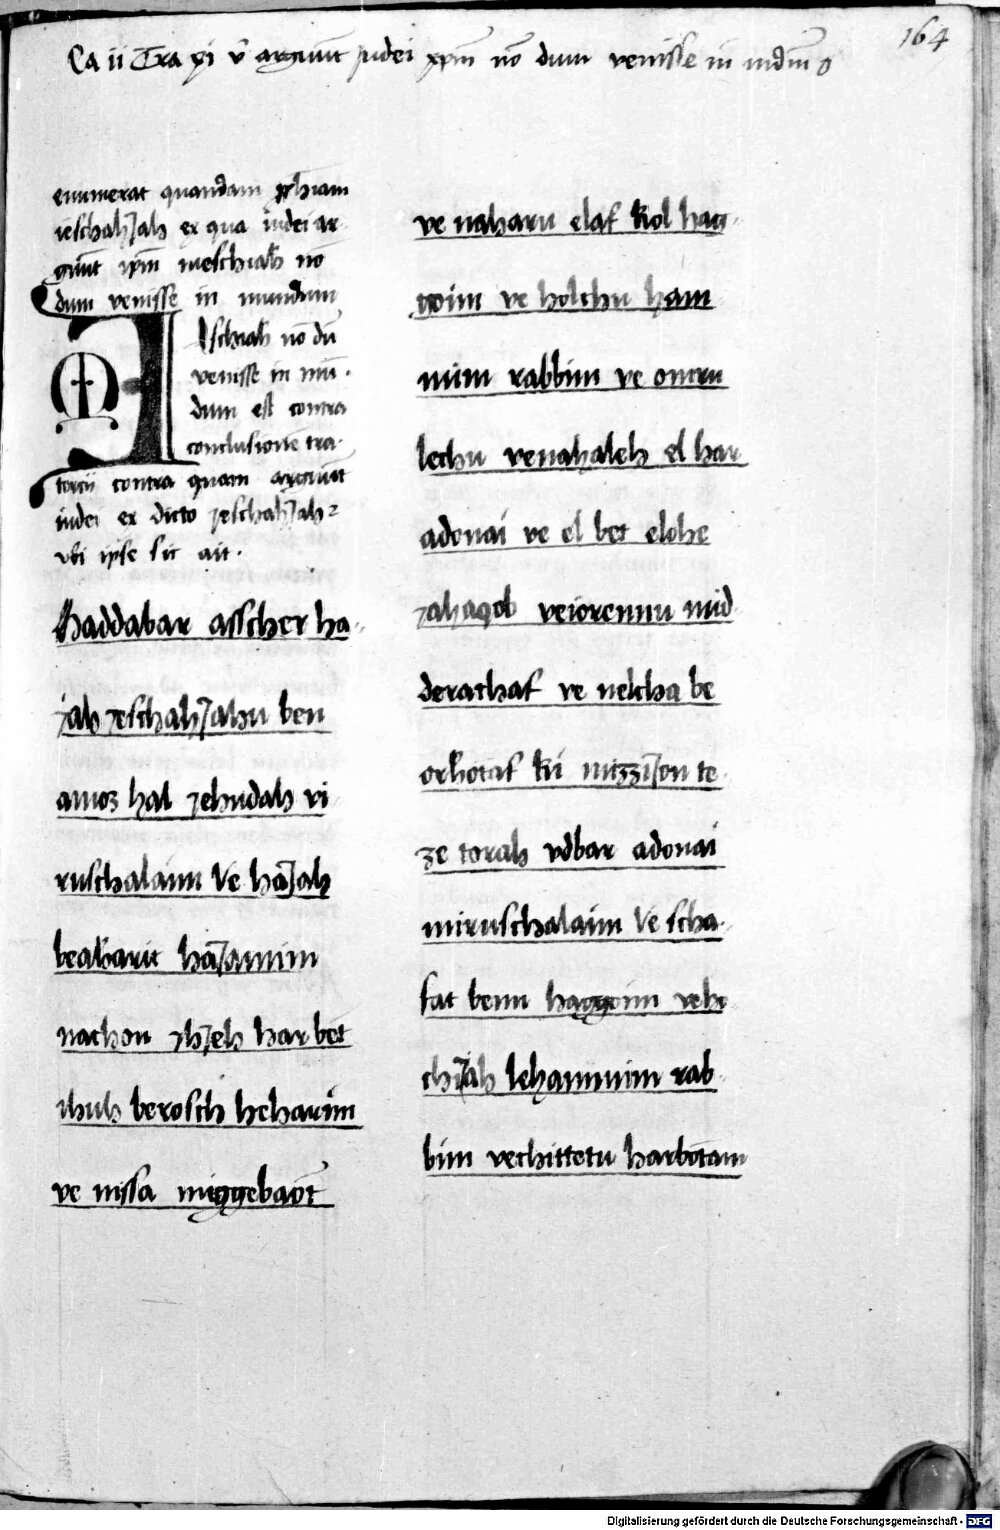 164
Ca ii Tra xi v̄ arguūt iudei xp̄m nō dum venisse in mdūm
enumerat quandam ꝓphiam
ieschahJah ex qua iudei ar-
guūt ip̄m meschiah nō
dum venisse in mundum
MEschiah nō dū
venisse in mū-
dum est contra
conclusionē tra-
tercii contra quam arguūt
iudei ex dicto JeschahJah
vbi ipse sic ait.
haddabar asscher ha-
Jah JeschahJahu ben
amoz hal Jehudah vi
ruschalaim Ve haJah
beaharit haJamim
nachon JhJeh har bet
Jhuh berosch heharim
ve nissa miggebaot
ve naharu elaf kol hag-
goim ve holchu ham
mim rabbim ve omru
lechu venahaleh el har
adonai ve el bet elohe
Jahaqob veiorennu mid
derachaf ve nelcha be
orhotaf ki mizziJon te-
ze torah vdbar adonai
miruschalaim Ve scha-
fat benn haggoim veho-
chiJah lehammim rab
bim vechittetu harbotam
Digitalisierung gefördert durch die Deutsche Forschungsgemeinschaft - DFG